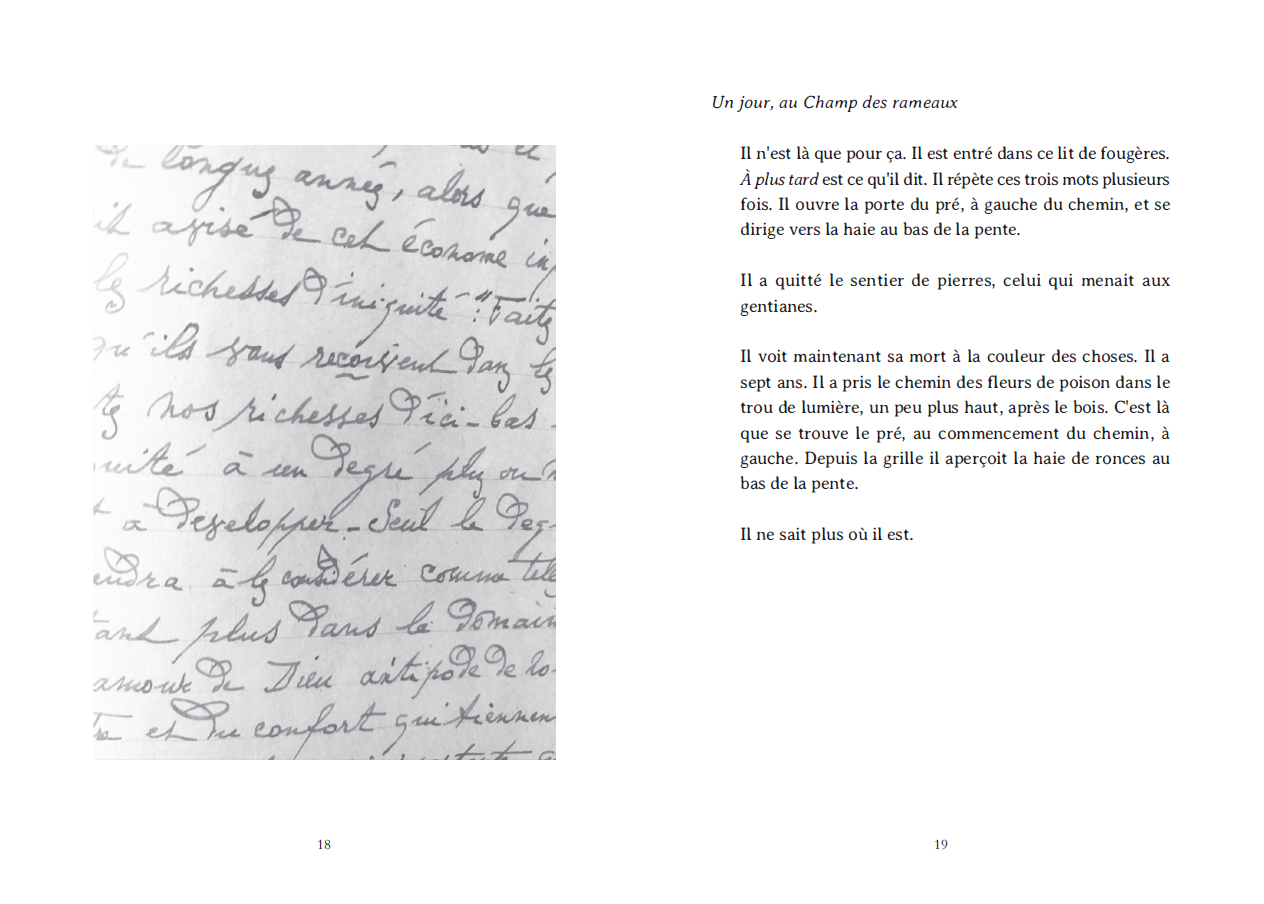 de longues années, alors que
il avisé de cet économe in
les richesses d'iniquité ": Faites
qu'ils vous reçoivent dans les
nos richesses d'ici-bas -
à un degré plus ou
à développer - Seul le deg
endra à les considérer comme tel
tant plus dans le domain
amour de Dieu antipode de
et du confort qui tiennen
18
Un jour, au Champ des rameaux
Il n'est là que pour ça. Il est entré dans ce lit de fougères.
À plus tard est ce qu'il dit. Il répète ces trois mots plusieurs
fois. Il ouvre la porte du pré, à gauche du chemin, et se
dirige vers la haie au bas de la pente.
Il a quitté le sentier de pierres, celui qui menait aux
gentianes.
Il voit maintenant sa mort à la couleur des choses. Il a
sept ans. Il a pris le chemin des fleurs de poison dans le
trou de lumière, un peu plus haut, après le bois. C'est là
que se trouve le pré, au commencement du chemin, à
gauche. Depuis la grille il aperçoit la haie de ronces au
bas de la pente.
Il ne sait plus où il est.
19